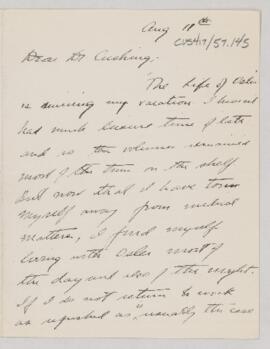 Aug 11th
CUS417/59.145
Dear Dr Cushing:
"The Life of Osler"
is ruining my vacation. I haven't
had much leisure time of late
and so the volumes remained
most of the time on the shelf
But now that I have torn
myself away from medical
matters, I find myself
living with Osler most of
the day and also of the night.
If I do not return to work
as refreshed as usually the case